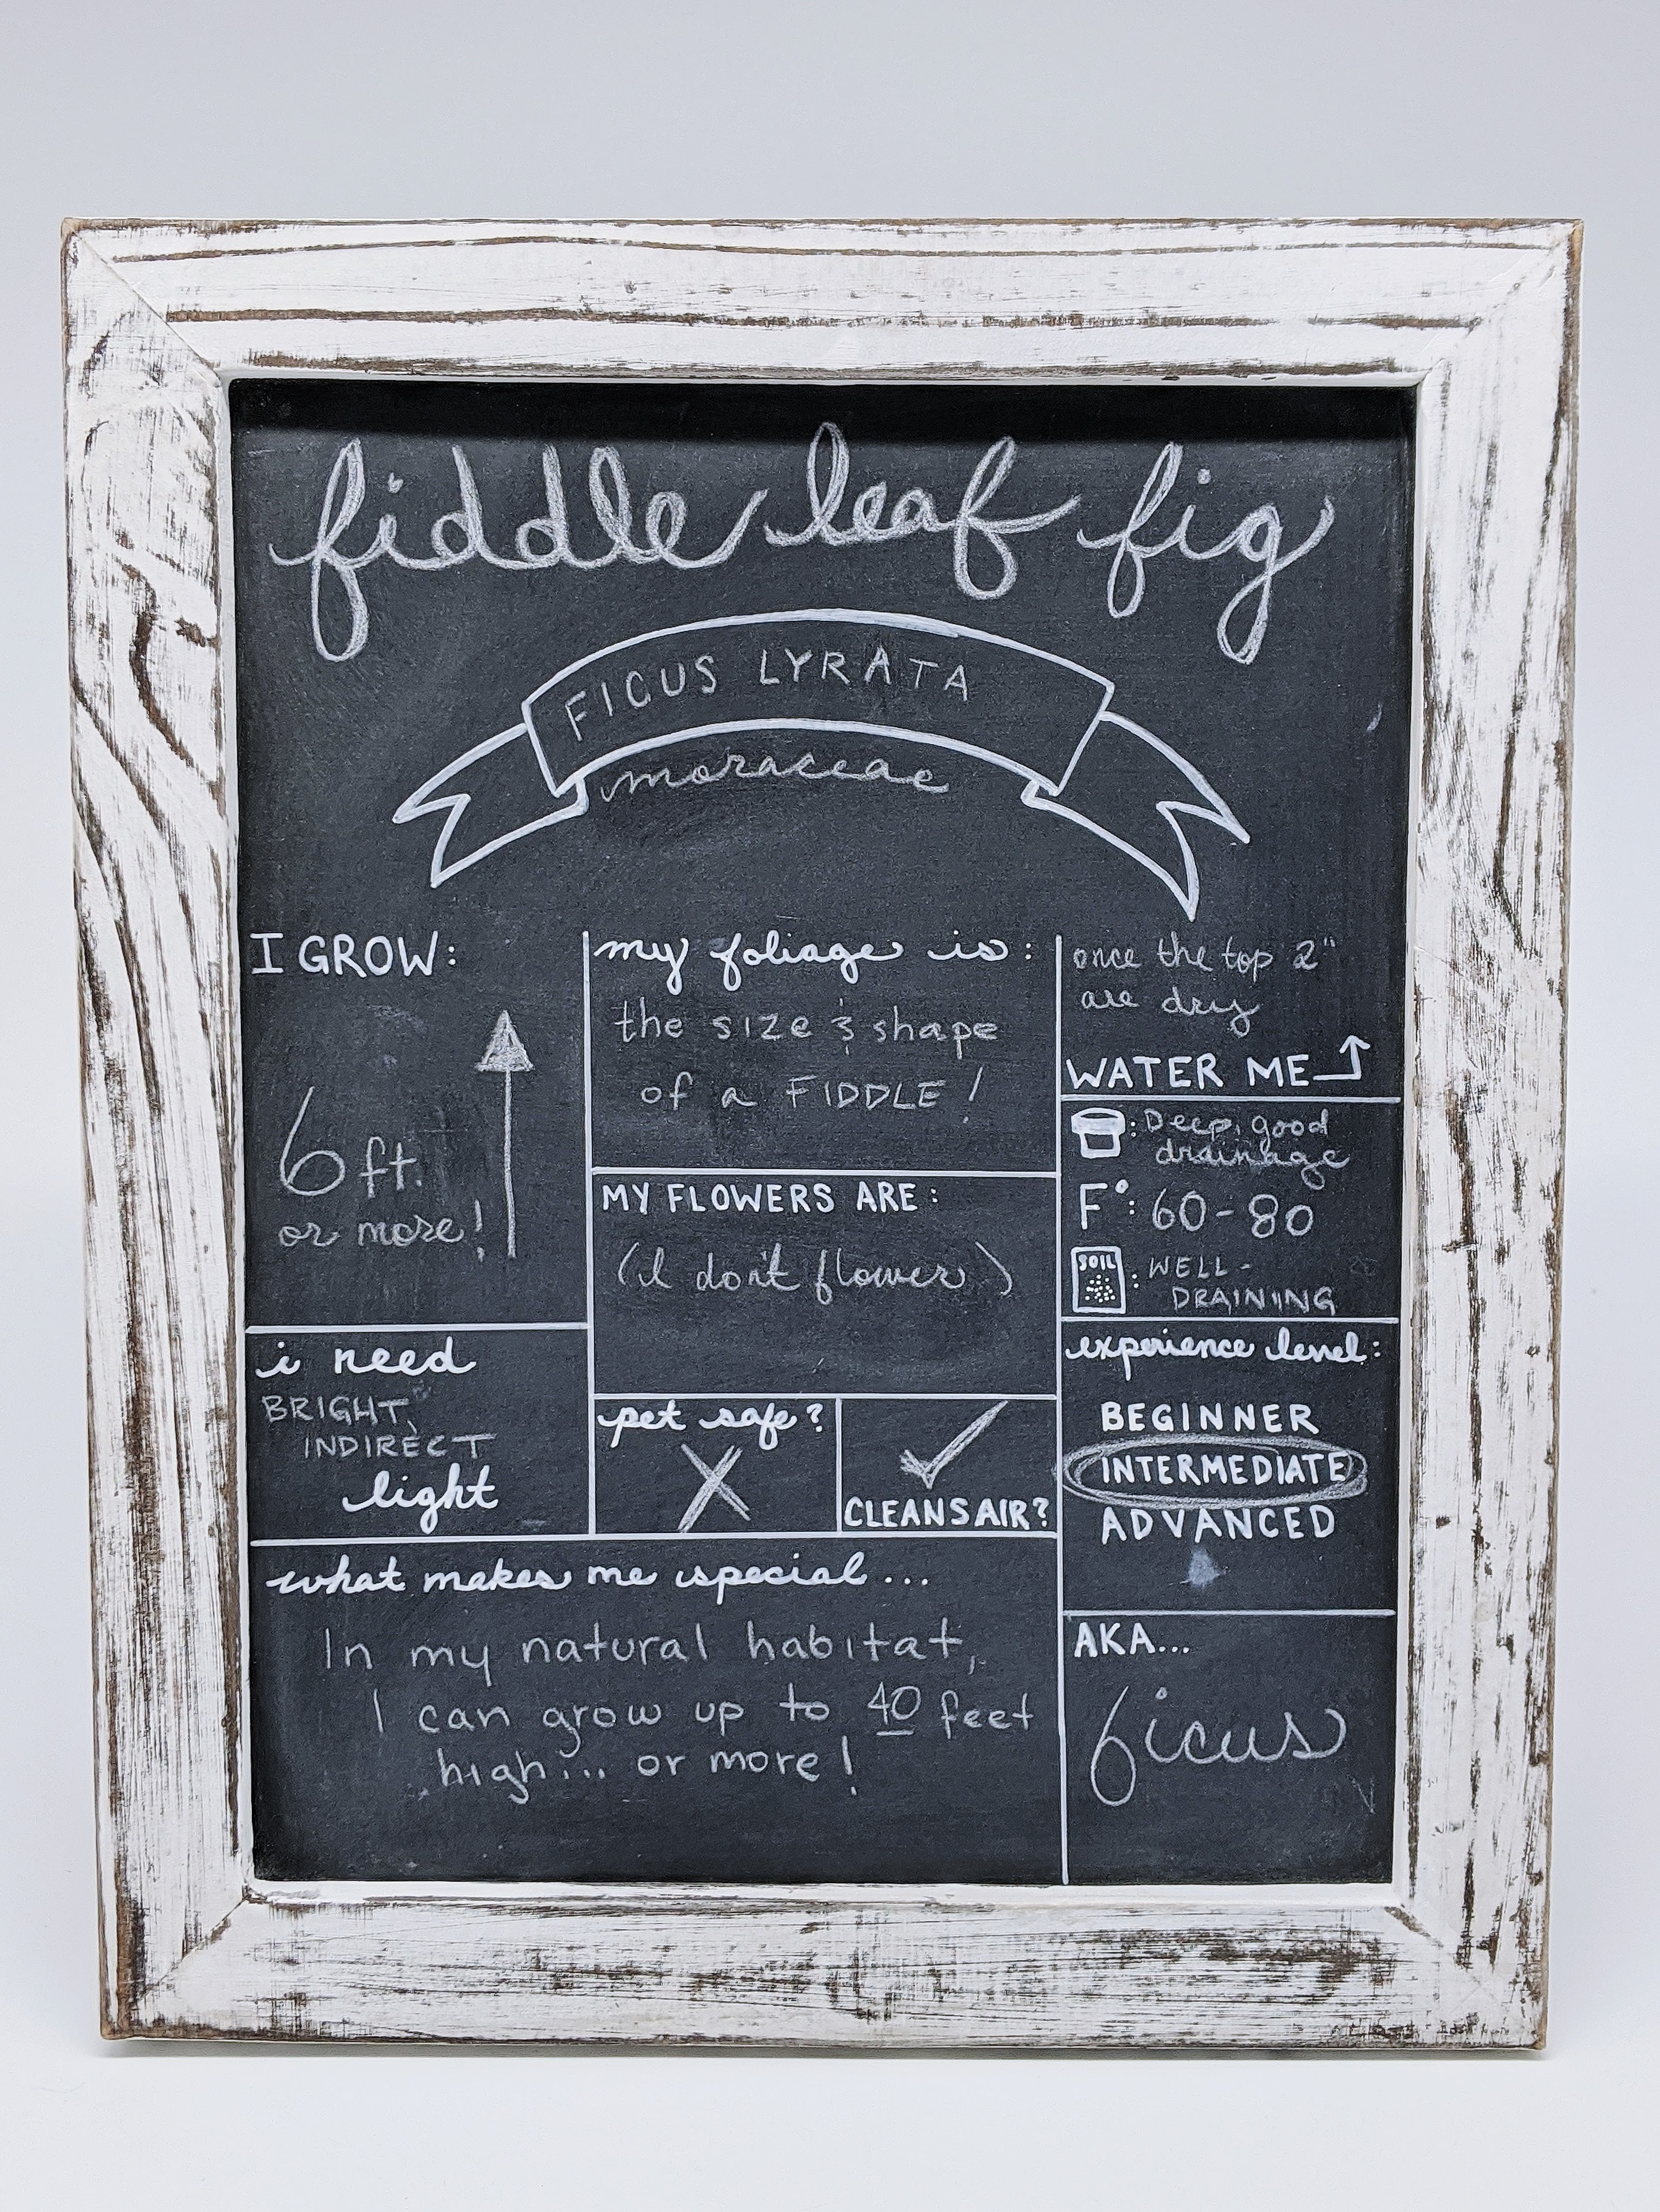 fiddle leaf fig
FICUS LYRATA
moraceae
I GROW:
6 ft.
or more!
i need
BRIGHT,
INDIRECT
light
my foliage is:
the size & shape
of a FIDDLE!
MY FLOWERS ARE:
(I don't flower)
pet safe?
CLEANS AIR?
once the top 2"
are dry
WATER ME
: Deep, good
drainage
F°: 60-80
SOIL : WELL-
DRAINING
experience level:
BEGINNER
INTERMEDIATE
ADVANCED
what makes me special...
In my natural habitat,
I can grow up to 40 feet
high... or more!
AKA...
ficus